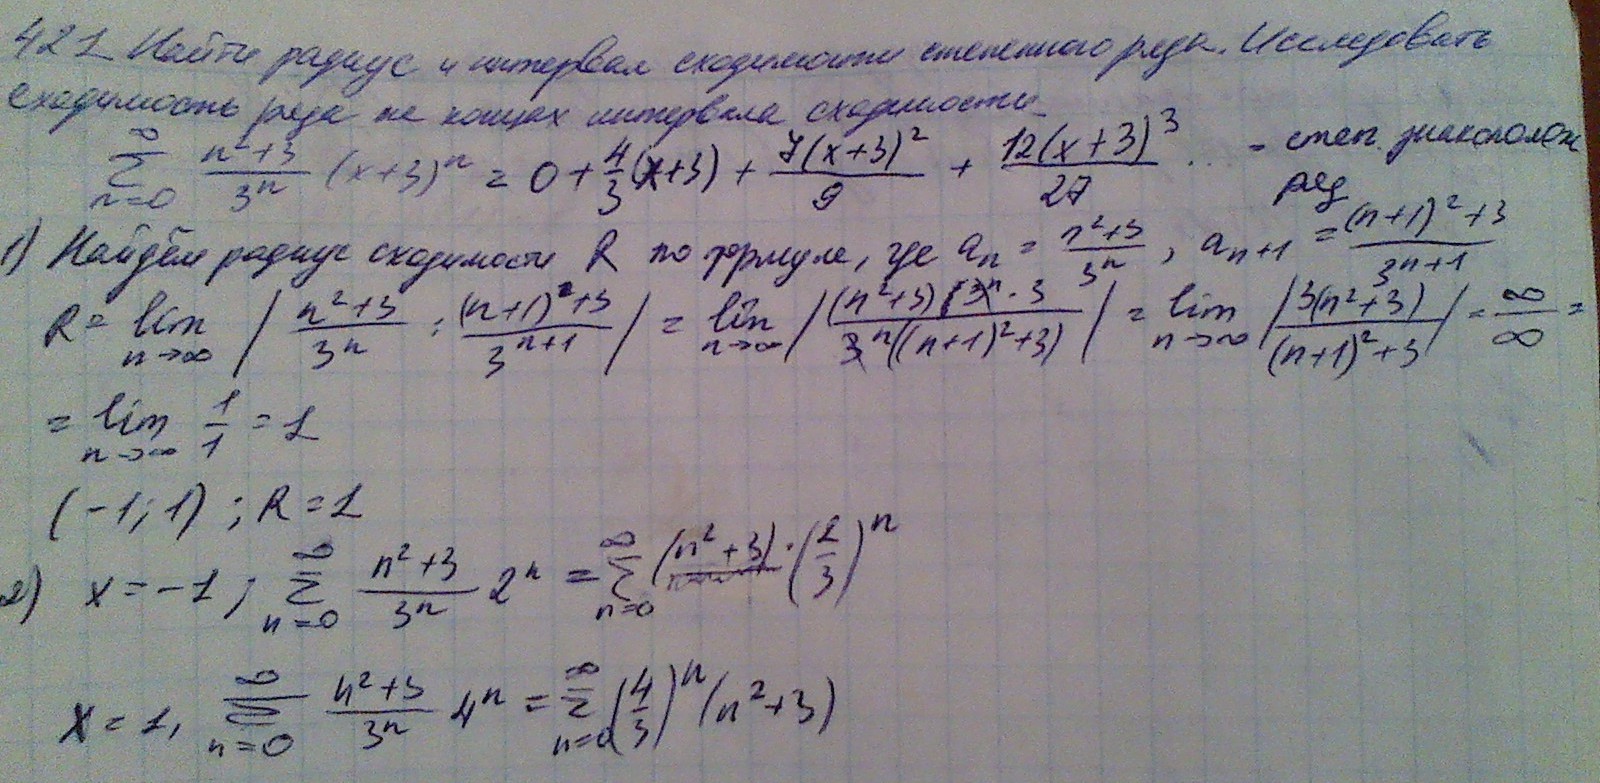 421 Найти радиус и интервал сходимости степенного ряда. Исследовать
сходимость ряда на концах интервала сходимости.
∑_{n=0}^{∞} (n²+3)/3ⁿ (x+3)ⁿ = 0 + 4/3 (x+3) + 7(x+3)²/9 + 12(x+3)³/27 ... - степ. знакополож
ряд
1) Найдём радиус сходимости R по формуле, где aₙ = (n²+3)/3ⁿ, aₙ₊₁ = ((n+1)²+3)/3ⁿ⁺¹
R = lim_{n→∞} | (n²+3)/3ⁿ : ((n+1)²+3)/3ⁿ⁺¹ | = lim_{n→∞} | (n²+3) 3ⁿ·3 / 3ⁿ((n+1)²+3) | = lim_{n→∞} | 3(n²+3) / (n+1)²+3 | = ∞/∞ =
= lim_{n→∞} 1/1 = 1
(-1; 1) ; R = 1
2) x = -1 ; ∑_{n=0}^{∞} (n²+3)/3ⁿ 2ⁿ = ∑_{n=0}^{∞} (n²+3) · (2/3)ⁿ
x = 1, ∑_{n=0}^{∞} (n²+3)/3ⁿ 4ⁿ = ∑_{n=0}^{∞} (4/3)ⁿ (n²+3)